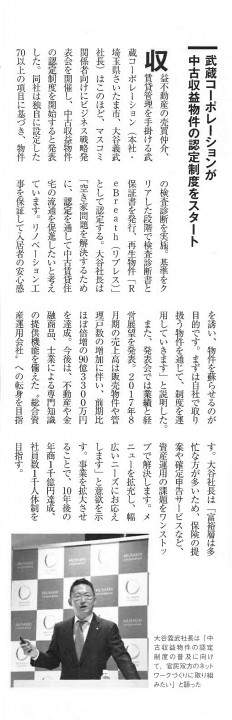 武蔵コーポレーションが
中古収益物件の認定制度をスタート
収益不動産の売買仲介、
賃貸管理を手掛ける武
蔵コーポレーション（本社・
埼玉県さいたま市、大谷義武
社長）はこのほど、マスコミ
関係者向けにビジネス戦略発
表会を開催し、中古収益物件
の認定制度を開始すると発表
した。同社は独自に設定した
70以上の項目に基づき、物件
の検査診断を実施。基準をク
リアした段階で検査診断書と
保証書を発行、再生物件「R
eBreath（リブレス）」
として認定する。大谷社長は
「空き家問題を解決するため
に、認定を通して中古賃貸住
宅の流通を促進したいと考え
ています。リノベーション工
事を保証して入居者の安心感
を誘い、物件を蘇らせるのが
目的です。まずは自社で取り
扱う物件を通じて、制度を運
用していきます」と説明した。
また、発表会では業績と経
営展望を発表。2017年8
月期の売上高は販売物件や管
理戸数の増加に伴い、前期比
ほぼ倍増の90億3300万円
を達成。今後は、不動産や金
融商品、士業による専門知識
の提供機能を備えた“総合資
産運用会社”への転身を目指
す。大谷社長は「富裕層は多
忙な方が多いため、保険の提
案や確定申告サービスなど、
資産運用の課題をワンストッ
プで解決します。メ
ニューを拡充し、幅
広いニーズにお応え
します」と意欲を示
す。事業を拡大させ
ることで、10年後の
年商1千億円達成、
社員数1千人体制を
目指す。
MUSASHI
大谷義武社長は「中
古収益物件の認定
制度の普及に向け
て、官民双方のネット
ワークづくりに取り組
みたい」と語った